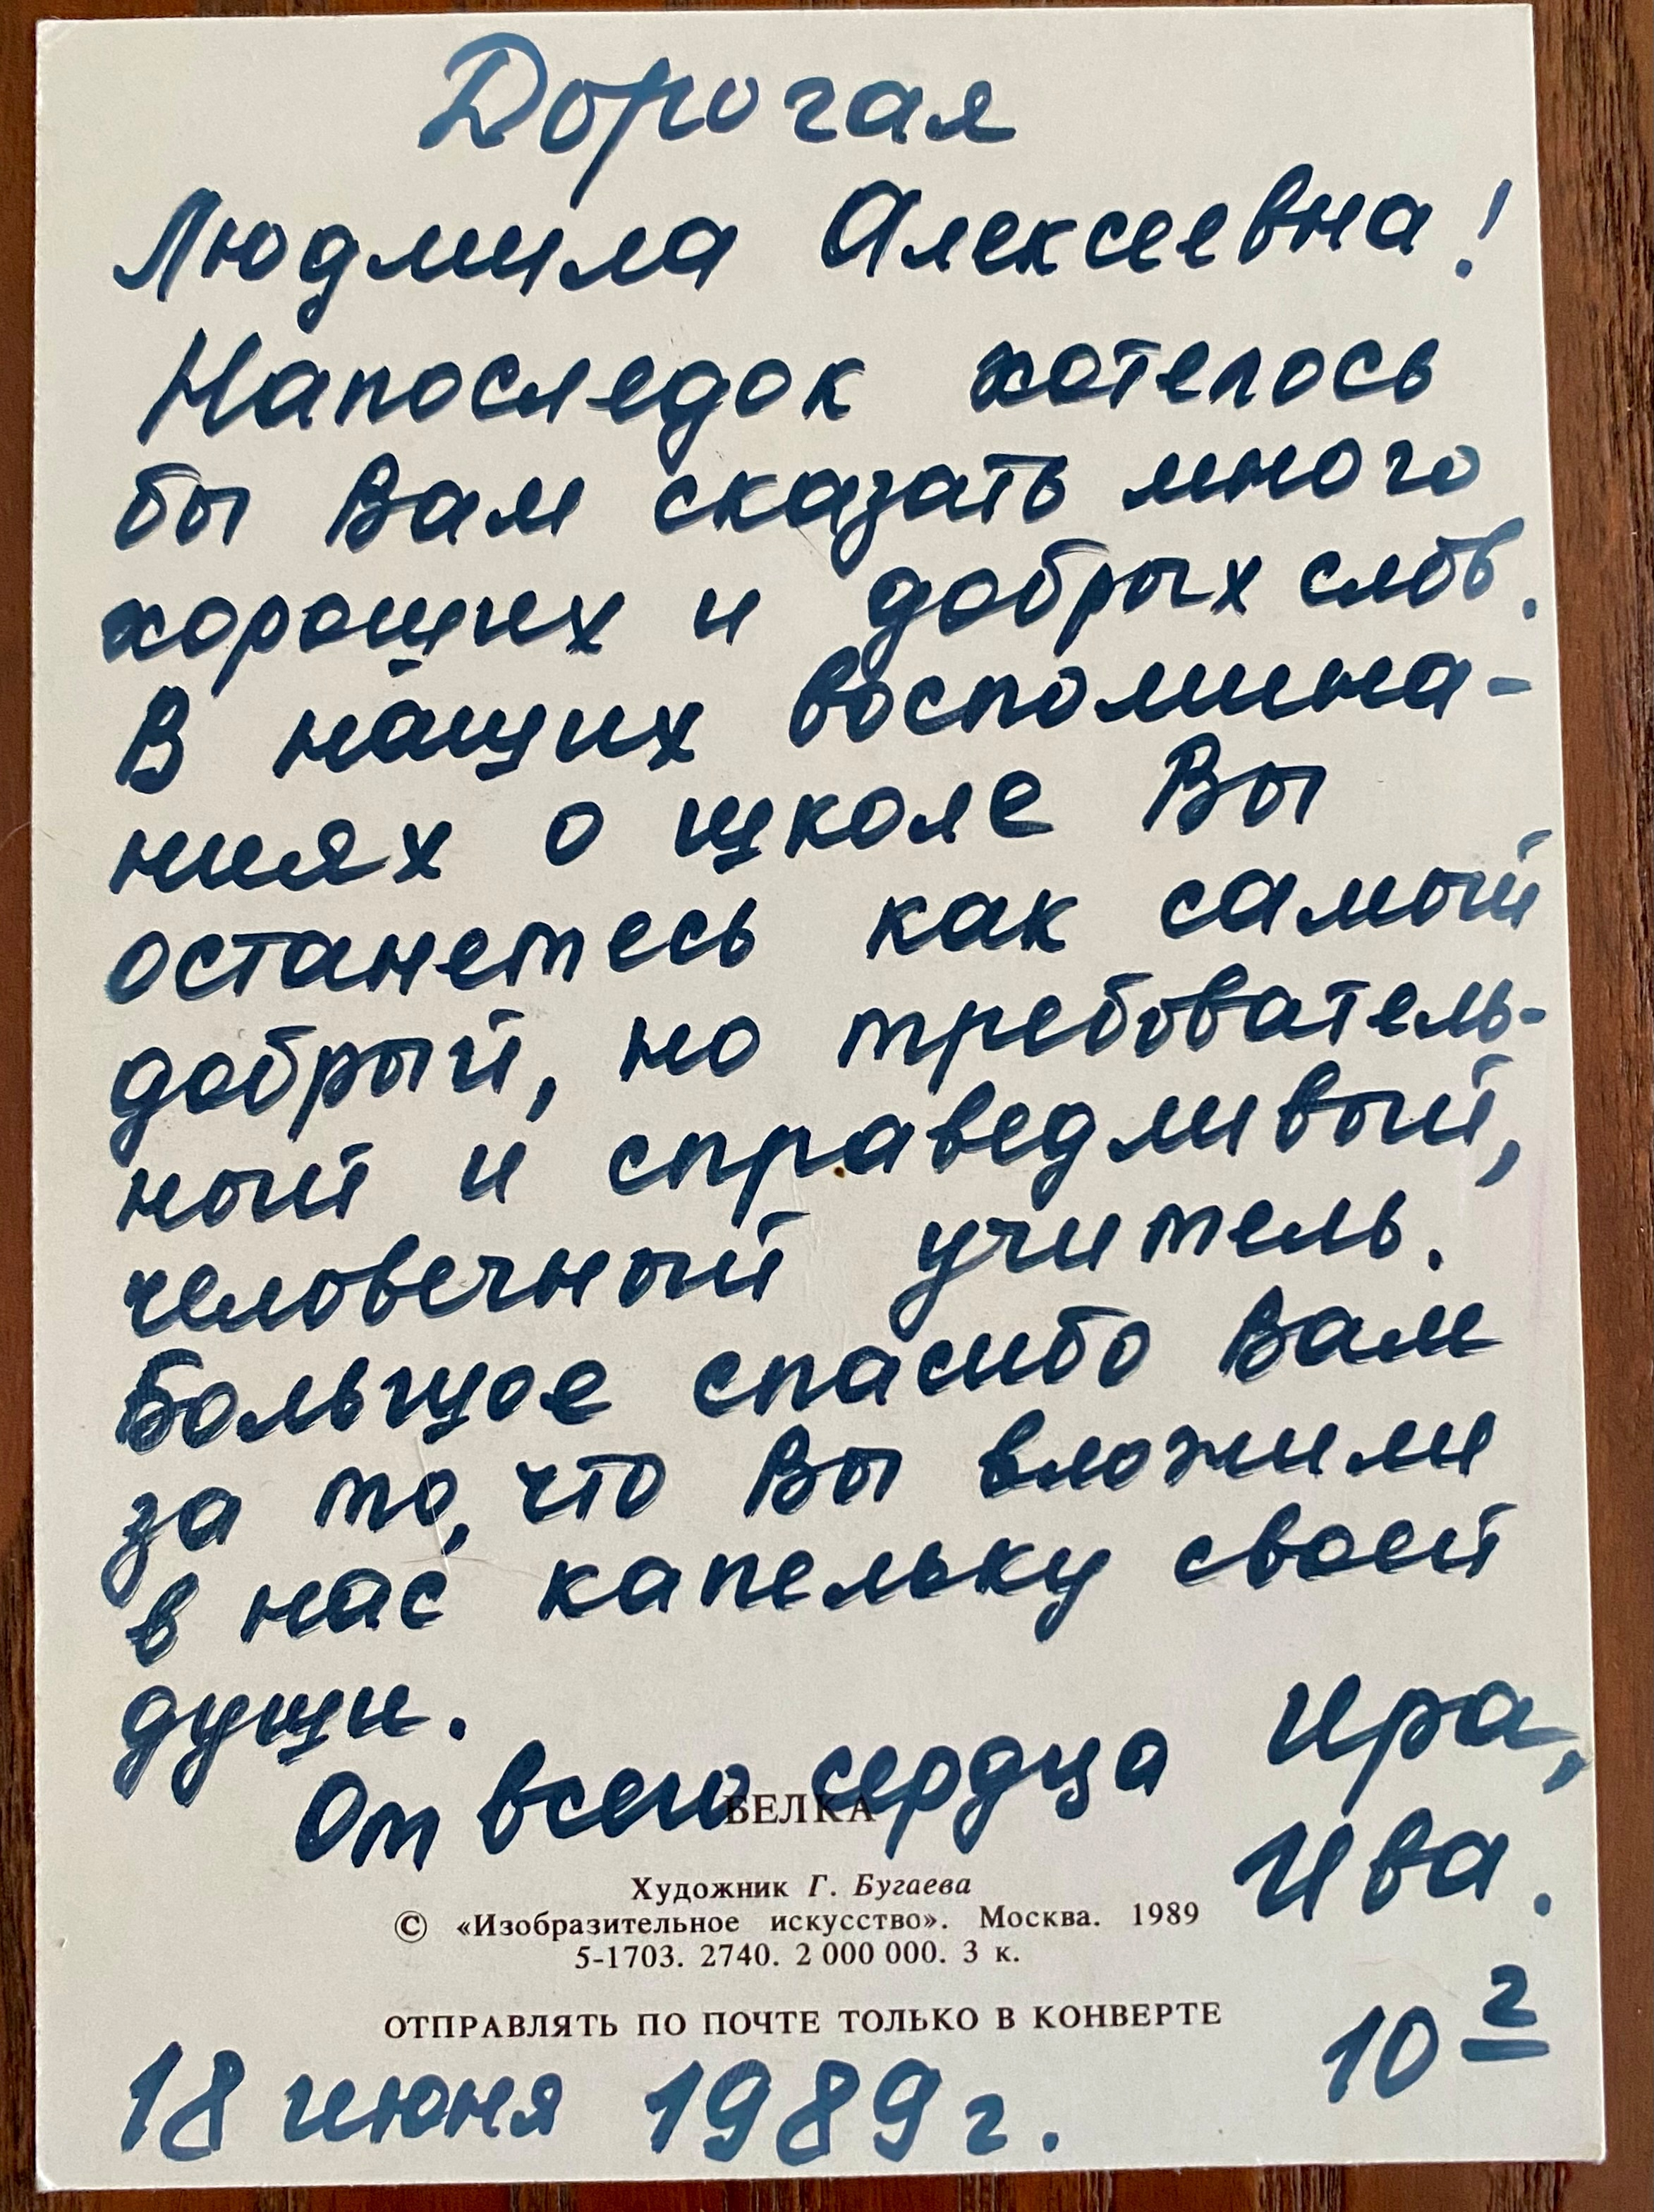 Дорогая
Людмила Алексеевна!
Напоследок хотелось
бы Вам сказать много
хороших и добрых слов.
В наших воспомина-
ниях о школе Вы
останетесь как самый
добрый, но требователь-
ный и справедливый,
человечный учитель.
Большое спасибо Вам
за то, что Вы вложили
в нас капельку своей
души.
От всего сердца Ира,
Ива.
БЕЛКА
Художник Г. Бугаева
© «Изобразительное искусство». Москва. 1989
5-1703. 2740. 2 000 000. 3 к.
ОТПРАВЛЯТЬ ПО ПОЧТЕ ТОЛЬКО В КОНВЕРТЕ
10 г
18 июня 1989 г.